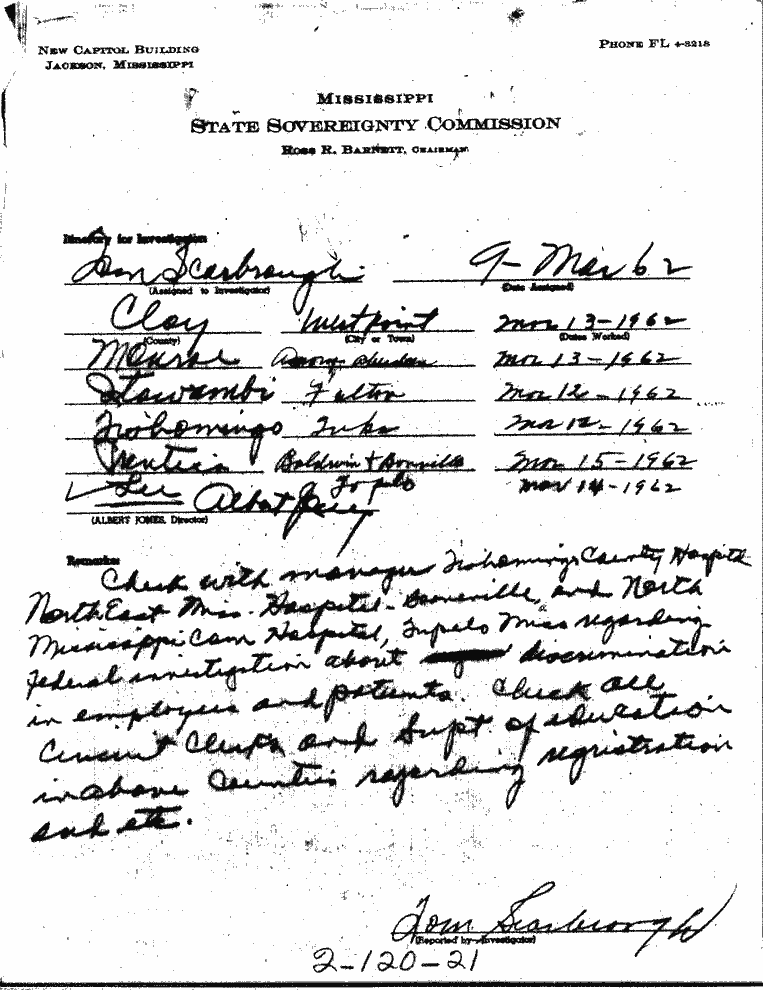 NEW CAPITOL BUILDING
JACKSON, MISSISSIPPI
PHONE FL 4-3218
MISSISSIPPI
STATE SOVEREIGNTY COMMISSION
ROSS R. BARNETT, CHAIRMAN
Itinerary for Investigation
Tom Scarbrough 9-Mar 62
(Assigned to Investigator) (Date Assigned)
Clay West point Mar 13-1962
(County) (City or Town) (Dates Worked)
Monroe Amory Aberdeen Mar 13-1962
Itawambi Fulton Mar 12-1962
Tishomingo Iuka Mar 12-1962
Prentiss Baldwin + Booneville Mar 15-1962
Lee Tupelo Mar 14-1962
Albert Jones
(ALBERT JONES, Director)
Remarks
Check with manager Tishomingo County Hospital
NorthEast Miss. Hospital-Booneville, and North
Mississippi Com Hospital, Tupelo Miss regarding
Federal investigation about discrimination
in employees and patients. Check all
Circuit Clerks and Supt of education
in above Counties regarding registration
and etc.
Tom Scarbrough
(Reported by-Investigator)
2-120-21